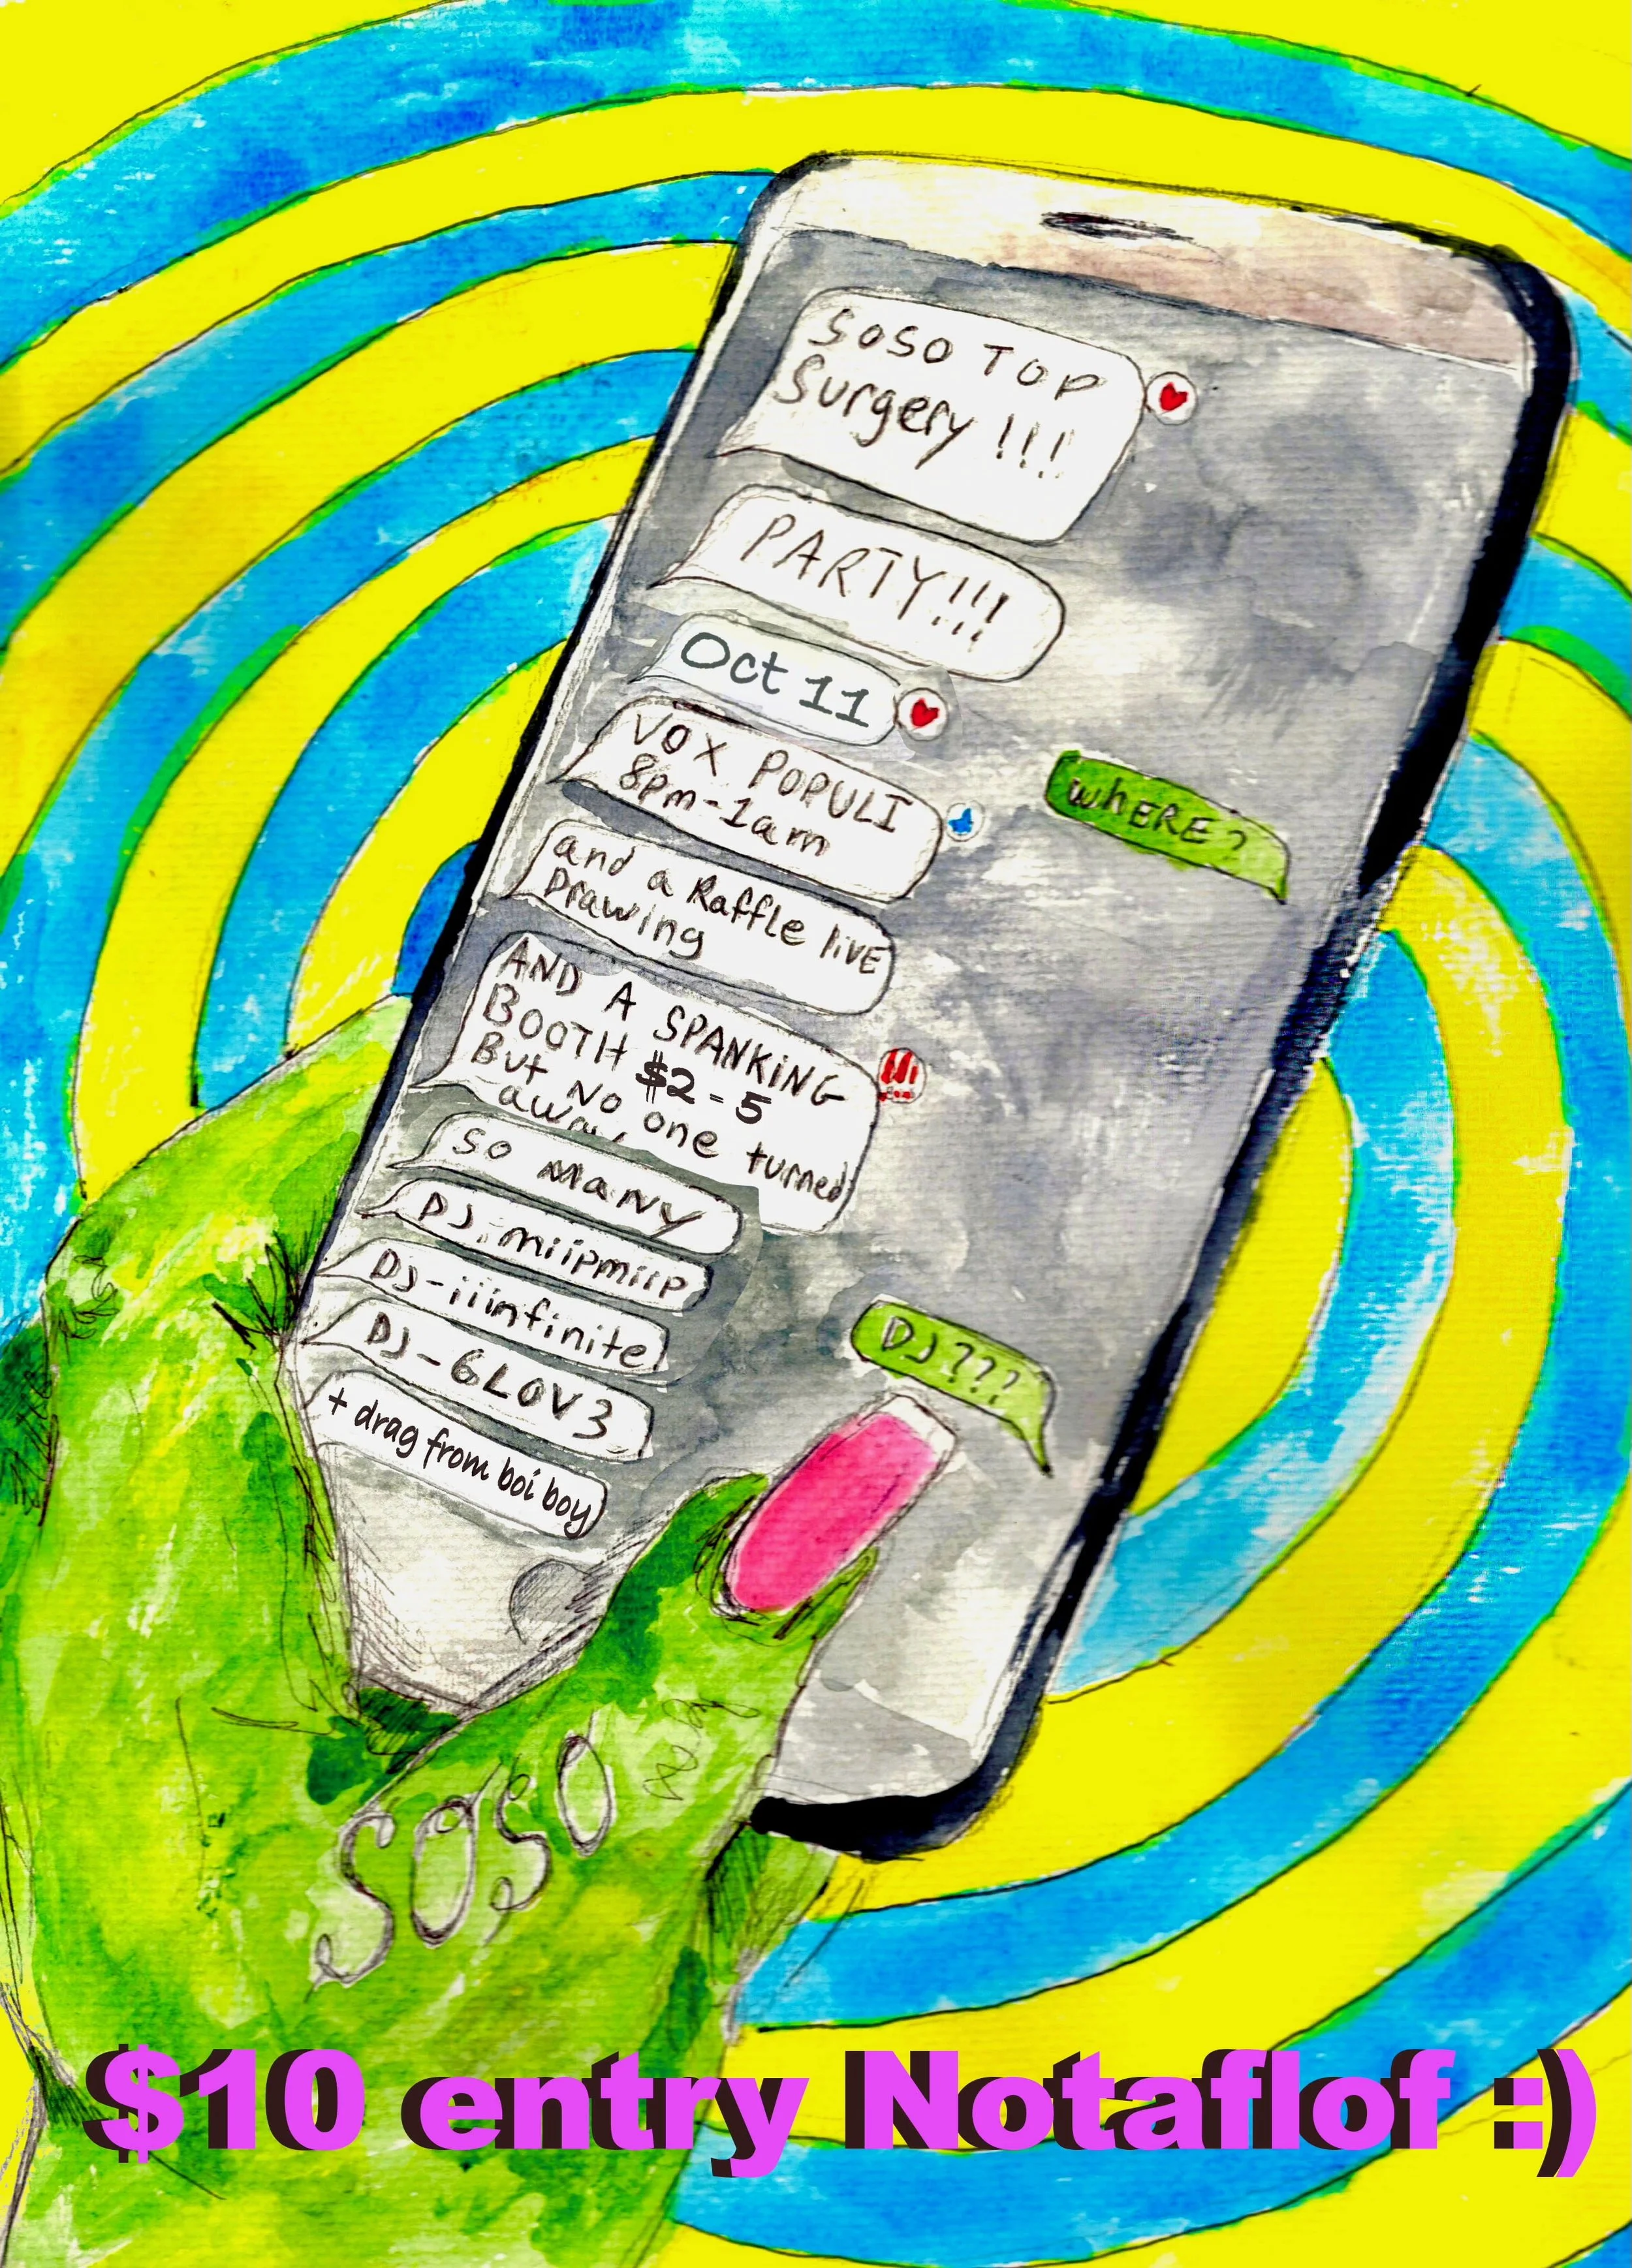 SOSO TOP
Surgery !!!
PARTY!!!
Oct 11
VOX POPULI
8pm-1am
WhERE?
and a Raffle livE
Drawing
AND A SPANKiNG
BOOTH $2-5
But no one turned
away
so maNY
DJ-miipmiip
DJ-iiinfinite
DJ-GLOV3
DJ???
+ drag from boi boy
SoSo
$10 entry Notaflof :)